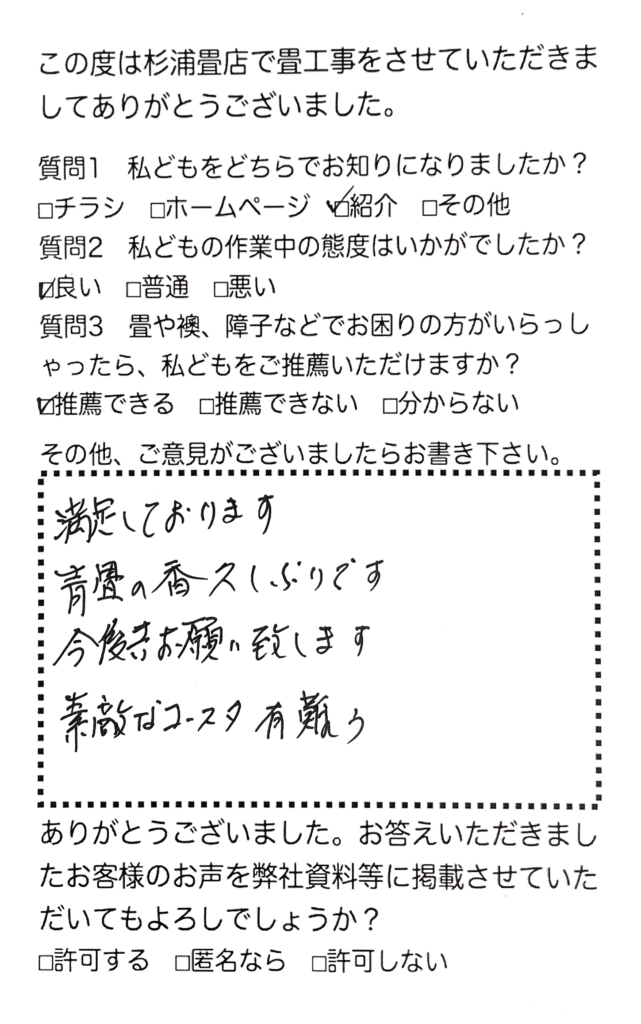 この度は杉浦畳店で畳工事をさせていただきま
してありがとうございました。
質問1　私どもをどちらでお知りになりましたか？
□チラシ　□ホームページ　☑紹介　□その他
質問2　私どもの作業中の態度はいかがでしたか？
☑良い　□普通　□悪い
質問3　畳や襖、障子などでお困りの方がいらっし
ゃったら、私どもをご推薦いただけますか？
☑推薦できる　□推薦できない　□分からない
その他、ご意見がございましたらお書き下さい。
満足しております
青畳の香久しぶりです
今後共お願い致します
素敵なコースタ有難う
ありがとうございました。お答えいただきまし
たお客様のお声を弊社資料等に掲載させていた
だいてもよろしでしょうか？
□許可する　□匿名なら　□許可しない